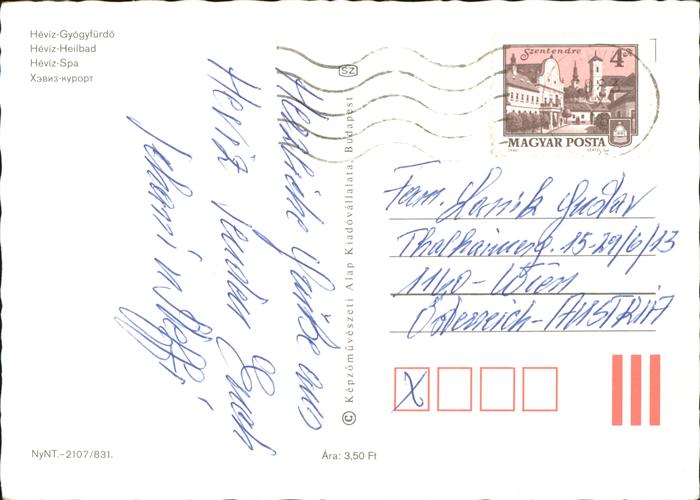 Hévíz-Gyógyfürdő
Hévíz-Heilbad
Hévíz-Spa
Хэвиз-курорт
Herzliche Grüße aus
Heviz senden Euch
SZ
Képzőművészeti Alap Kiadóvállalata, Budapest
Szentendre
4 Ft
MAGYAR POSTA
Fam. Hanik Gustav
Thalhaimerg. 15-29/6/13
1160-Wien
Österreich-AUSTRIA
X
NyNT.–2107/831.
Ára: 3,50 Ft